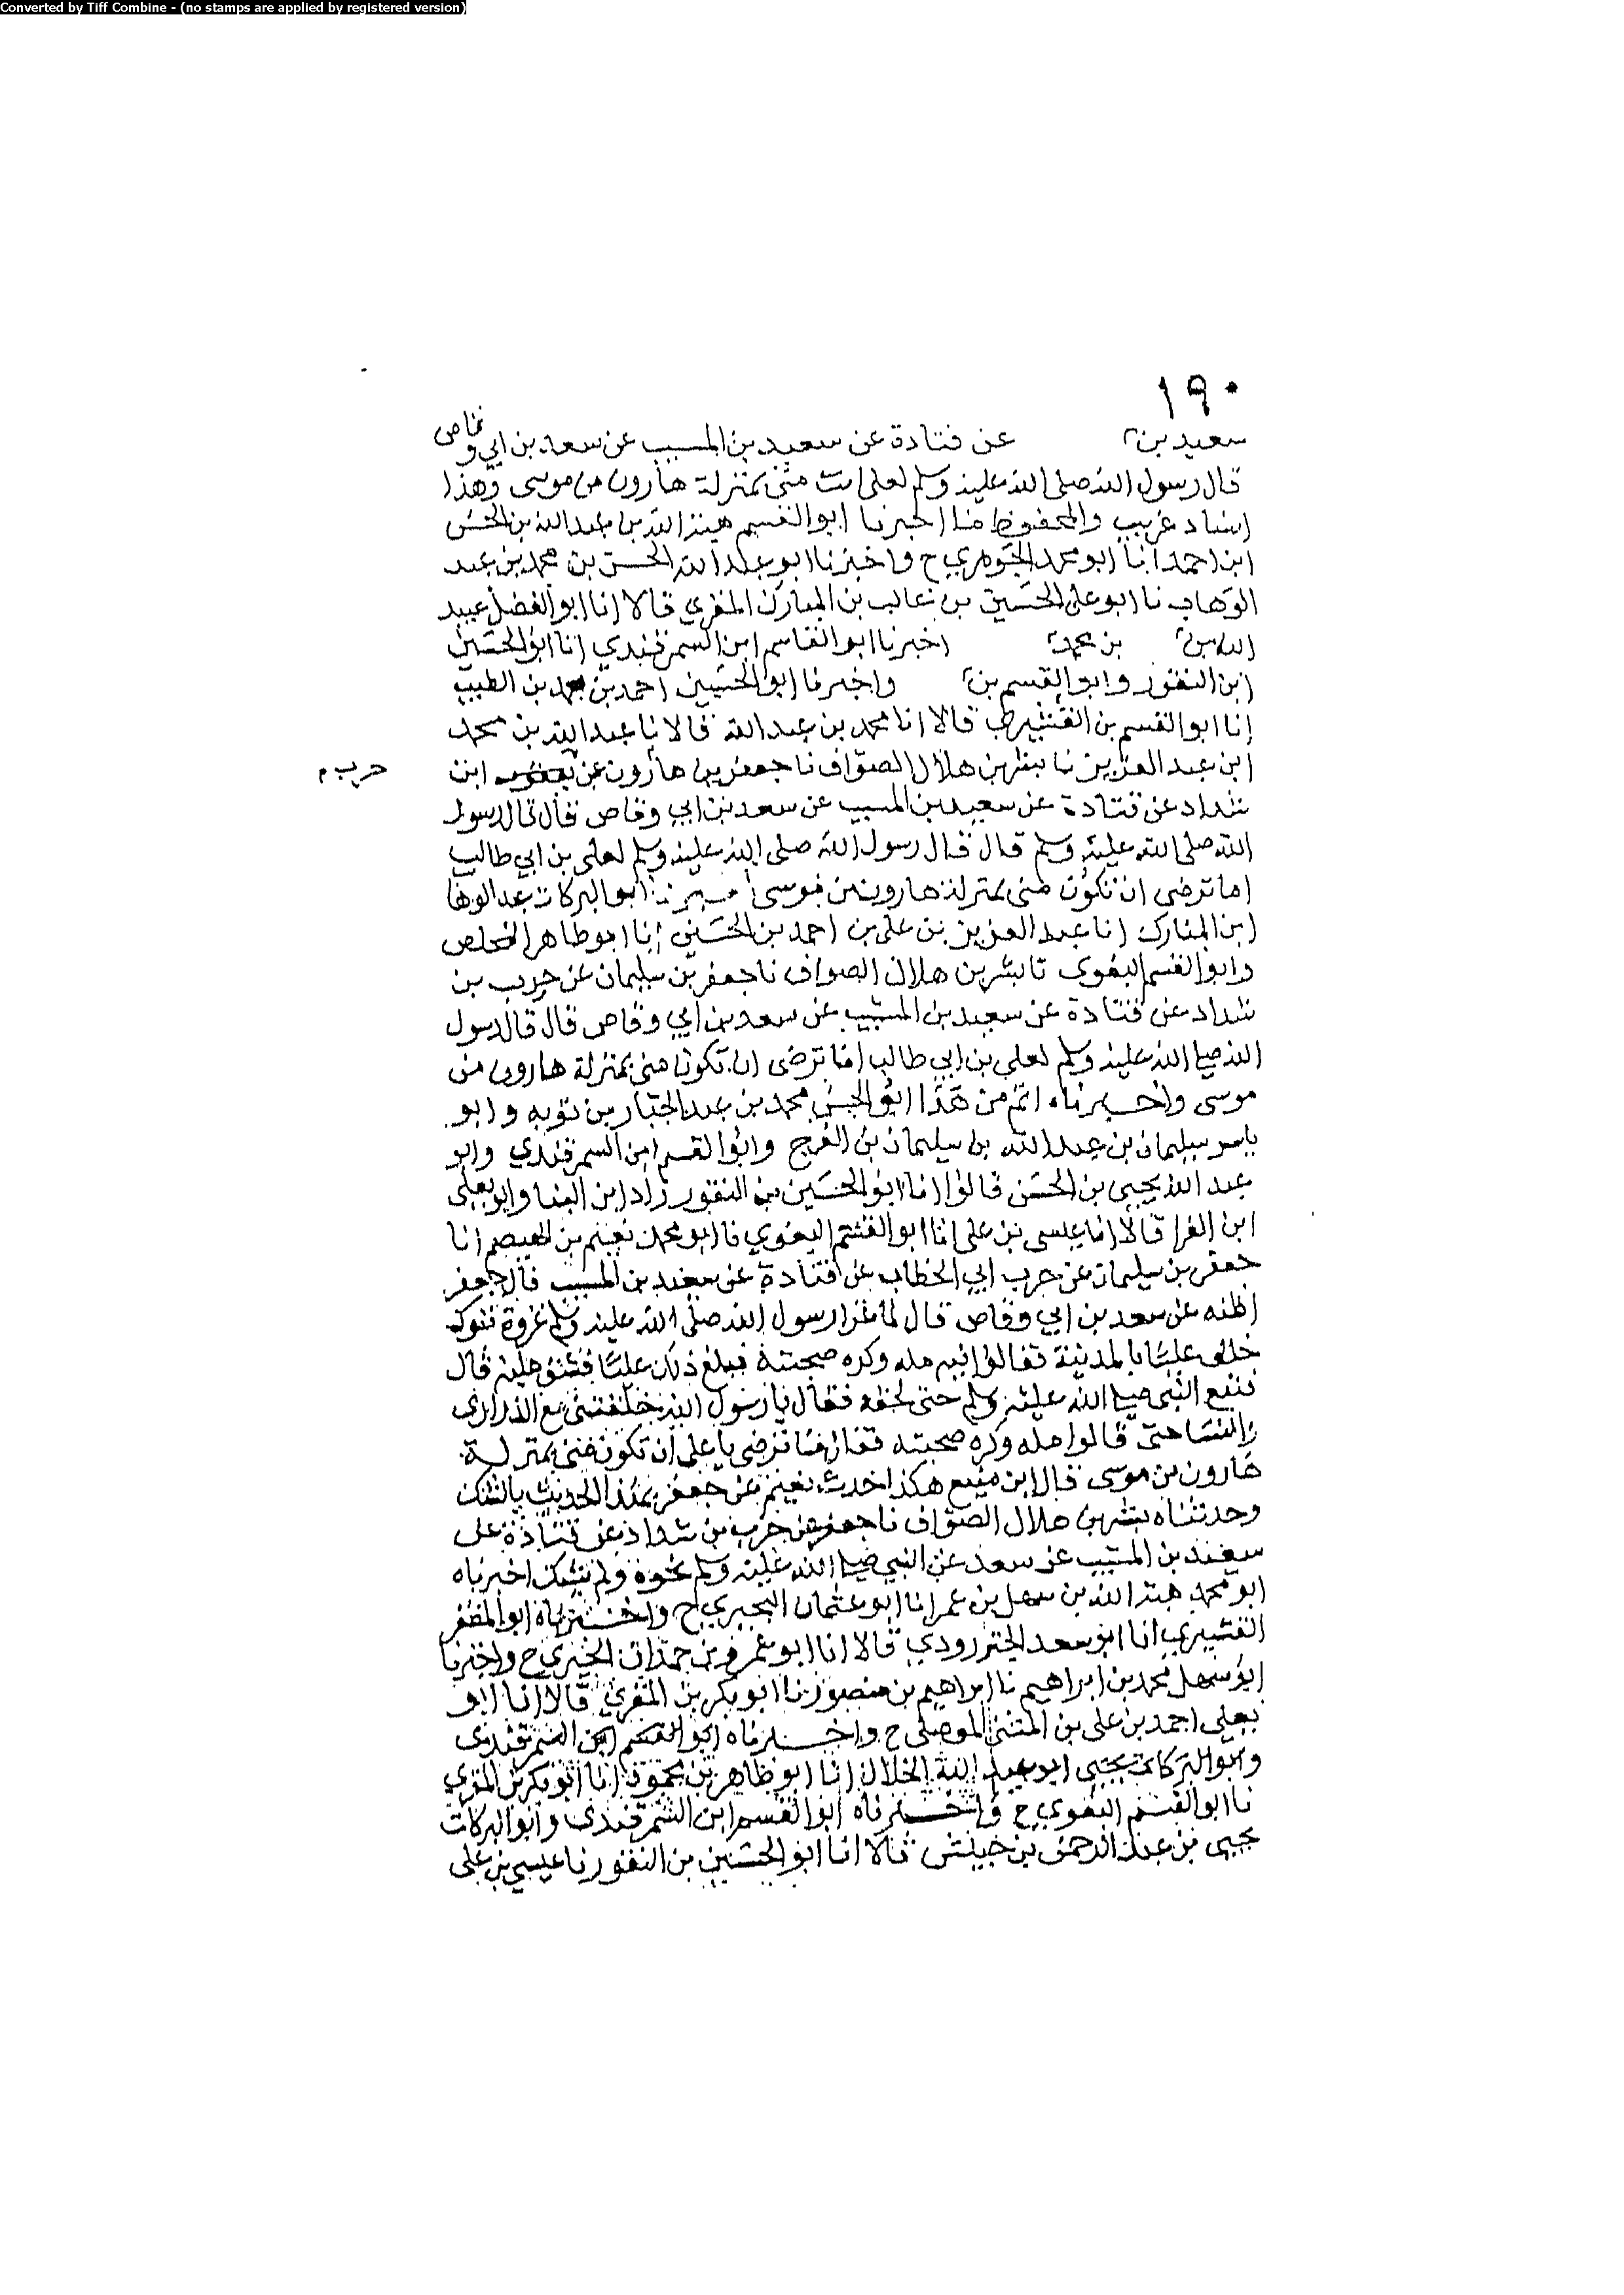 Converted by Tiff Combine - (no stamps are applied by registered version)
١٩٠
سعيد بن عن قتادة عن سعيد بن المسيب عن سعد بن ابي وقاص
قال رسول الله صلى الله عليه وسلم لعلي انت مني بمنزلة هارون من موسى وهذا
اسناد غريب والمحفوظ ما اخبرنا ابو القسم هبة الله بن عبد الله بن الحسن
ابن احمد انا ابو محمد الجوهري ح واخبرنا ابو عبد الله الحسن بن محمد بن عبد
الوهاب نا ابو علي الحسين بن غالب بن المبارك المقري قالا انا ابو الفضل عبيد
الله بن بن محمد اخبرنا ابو القاسم ابن السمرقندي انا ابو الحسين
ابن النقور وابو القسم بن واخبرنا ابو الحسين احمد بن محمد بن الطيب
انا ابو القسم بن قالا انا محمد بن عبد الله قالا نا عبد الله بن محمد
ابن عبد العزيز نا بشر بن هلال الصواف نا جعفر بن هارون عن ابن
حرب
شداد عن قتادة عن سعيد بن المسيب عن سعد بن ابي وقاص قال قال رسول
الله صلى الله عليه وسلم قال قال رسول الله صلى الله عليه وسلم لعلي بن ابي طالب
اما ترضى ان تكون مني بمنزلة هارون من موسى ابو البركات عبد الوها
ابن المبارك انا عبد العزيز بن علي بن احمد بن الحسين انا ابو طاهر المخلص
وابو القسم البغوى نا بشر بن هلال الصواف نا جعفر بن سليمان عن حرب بن
شداد عن قتادة عن سعيد بن المسيب عن سعد بن ابي وقاص قال قال رسول
الله صلى الله عليه وسلم لعلي بن ابي طالب اما ترضى ان تكون مني بمنزلة هارون من
موسى واخبرناه اتم من هذا ابو الحسن محمد بن عبد الجبار بن توبه وابو
ياسر سليمان بن عبد الله بن سليمان بن الفرج وابو القسم ابن السمرقندي وابو
عبد الله يحيى بن الحسن قالوا انا ابو الحسين بن النقور زاد ابن البنا وابو يعلى
ابن الفرا قالا انا عيسى بن علي انا ابو القسم البغوي نا ابو محمد نعيم بن الهيصم انا
جعفر بن سليمان عن حرب ابي الخطاب عن قتادة عن سعيد بن المسيب قال جعفر
اظنه عن سعد بن ابي وقاص قال لما غزا رسول الله صلى الله عليه وسلم غزوة تبوك
خلف عليا بالمدينة فقالوا مله وكره صحبته فبلغ ذلك عليا فشق عليه قال
فتبع النبي صلى الله عليه وسلم حتى لحقه فقال يا رسول الله خلفتني مع الذراري
والنسا حتى قالوا مله وكره صحبته فقال اما ترضى يا علي ان تكون مني بمنزلة
هارون من موسى قال ابن منيع هكذا حدث نعيم عن جعفر بهذا الحديث بالشك
وحدثناه بشر بن هلال الصواف نا جعفر عن حرب بن شداد عن قتادة عن
سعيد بن المسيب عن سعد عن النبي صلى الله عليه وسلم نحوه ولم يشك اخبرناه
ابو محمد هبة الله بن سهل بن عمر انا ابو عثمان البحيري ح واخبرناه ابو المظفر
القشيري انا ابو سعد الجنزرودي قالا انا ابو عمرو بن حمدان الحيري ح واخبرنا
ابو سهل محمد بن ابراهيم نا ابراهيم بن منصور نا ابو بكر بن المقري قالا انا ابو
يعلى احمد بن علي بن المثنى الموصلي ح واخبرناه ابو القسم ابن السمرقندى
وابو البركات يحيى ابو عبد الله الخلال انا ابو طاهر بن محمود انا ابو بكر بن المقري
نا ابو القسم البغوي ح واخبرناه ابو القسم ابن السمرقندى وابو البركات
يحيى بن عبد الرحمن بن حبيش قالا انا ابو الحسين بن النقور نا عيسى بن علي